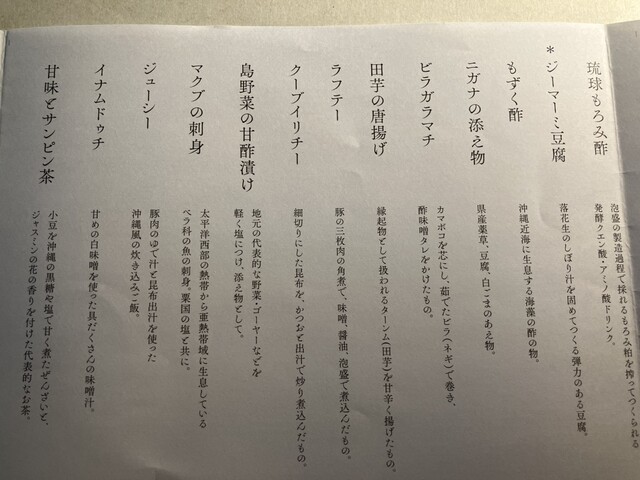 琉球もろみ酢
泡盛の製造過程で採れるもろみ粕を搾ってつくられる
発酵クエン酸・アミノ酸ドリンク。
*ジーマーミ豆腐
落花生のしぼり汁を固めてつくる弾力のある豆腐。
もずく酢
沖縄近海に生息する海藻の酢の物。
ニガナの添え物
県産薬草、豆腐、白ごまのあえ物。
ビラガラマチ
カマボコを芯にし、茹でたビラ(ネギ)で巻き、
酢味噌タレをかけたもの。
田芋の唐揚げ
縁起物として扱われるターンム(田芋)を甘辛く揚げたもの。
ラフテー
豚の三枚肉の角煮で、味噌、醤油、泡盛で煮込んだもの。
クーブイリチー
細切りにした昆布を、かつおと出汁で炒り煮込んだもの。
島野菜の甘酢漬け
地元の代表的な野菜・ゴーヤーなどを
軽く塩につけ、添え物として。
マクブの刺身
太平洋西部の熱帯から亜熱帯域に生息している
ベラ科の魚の刺身。粟国の塩と共に。
ジューシー
豚肉のゆで汁と昆布出汁を使った
沖縄風の炊き込みご飯。
イナムドゥチ
甘めの白味噌を使った具だくさんの味噌汁。
甘味とサンピン茶
小豆を沖縄の黒糖や塩で甘く煮たぜんざいと、
ジャスミンの花の香りを付けた代表的なお茶。